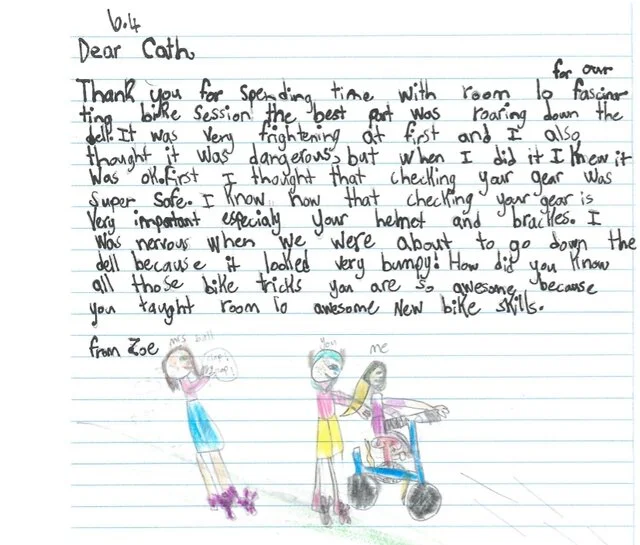 6.4
Dear Cath
for our
Thank you for spending time with room 10 fascinar
ting bike session the best part was roaring down the
dell. It was very frightening at first and I also
thought it was dangerous, but when I did it I knew it
was ok. first I thought that checking your gear was
super safe. I know now that checking your gear is
very important especialy your helmet and brackles. I
was nervous when we were about to go down the
dell because it looked very bumpy! How did you know
all those bike tricks you are so awesome because
you taught room 10 awesome new bike skills.
from Zoe
mrs ball
clap!
clap!
You
me